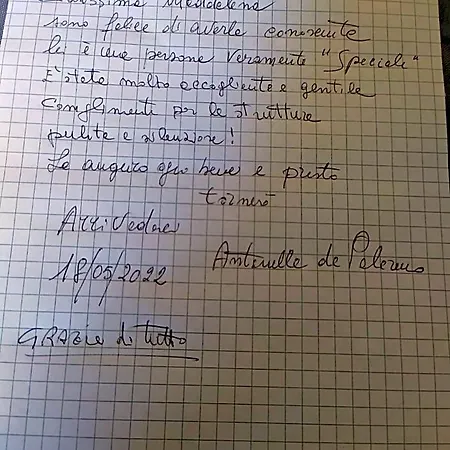 Maddalena
sono felice di averla conosciute
lei è una persona veramente "Speciale"
E' stata molto accogliente e gentile
Complimenti per la struttura
pulita e silenziosa!
Le auguro ogni bene e presto
tornerò
Arrivederci
18/05/2022
Antonella da Palermo
GRAZIE di tutto